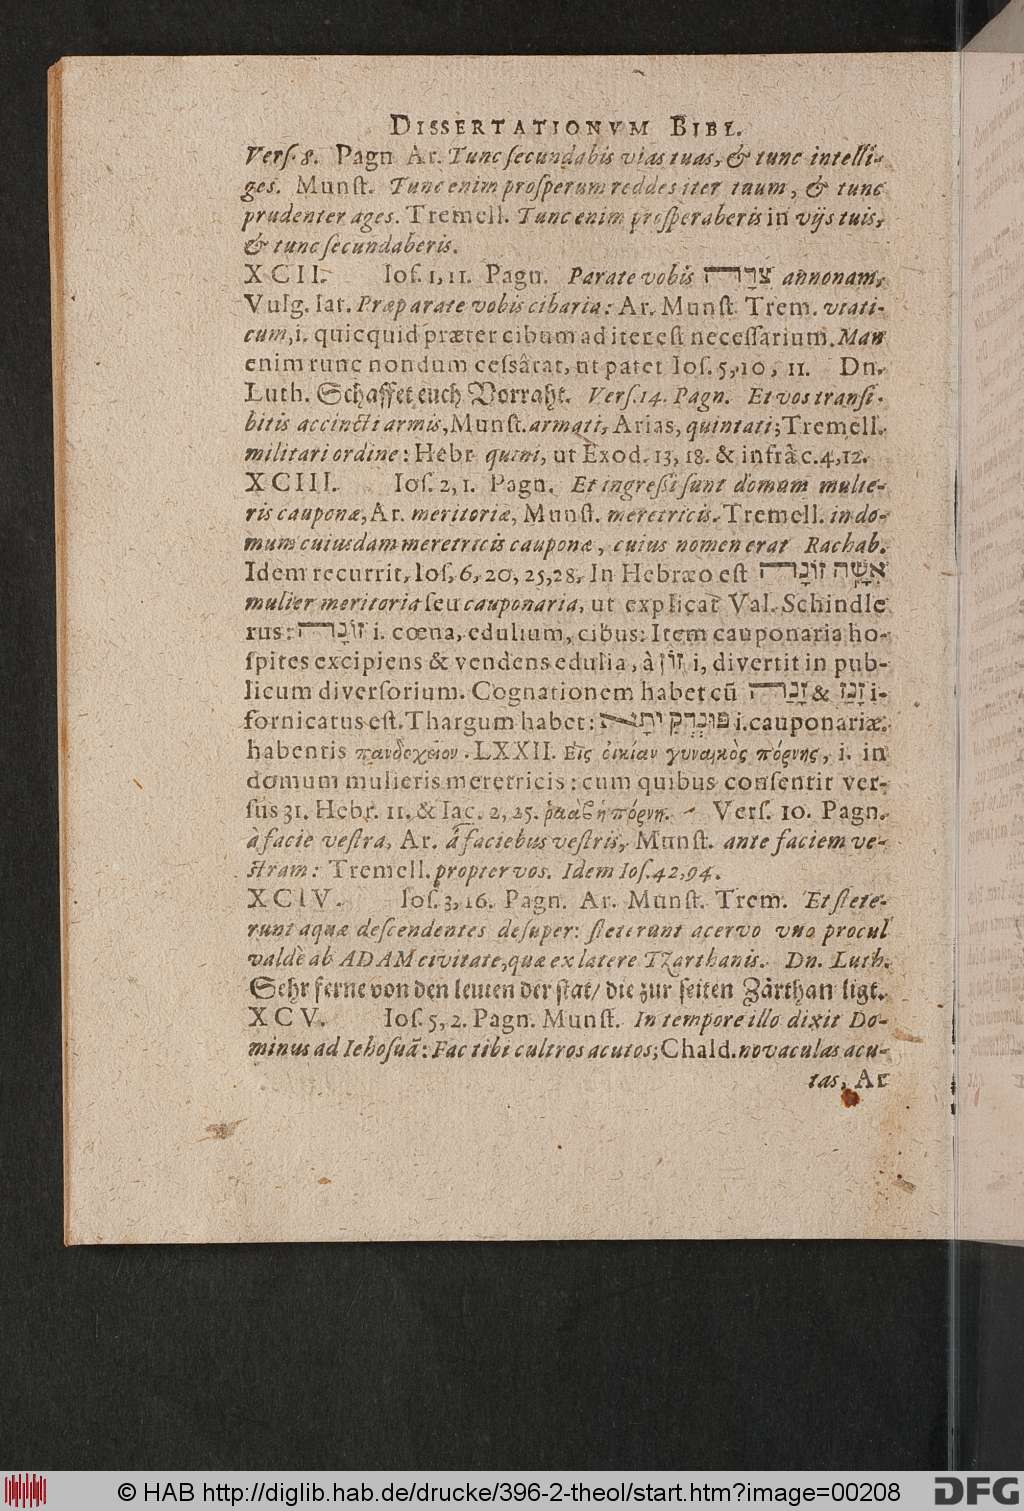 DISSERTATIONVM BIBL.
Vers. 8. Pagn. Ar. Tunc secundabis vias tuas, & tunc intelli-
ges. Munst. Tunc enim prosperum reddes iter tuum, & tunc
prudenter ages. Tremell. Tunc enim prosperaberis in vijs tuis,
& tunc secundaberis.
XCII. Ios. 1, 11. Pagn. Parate vobis צרה annonam,
Vulg. lat. Præparate vobis cibaria: Ar. Munst. Trem. viati-
cum, i. quicquid præter cibum ad iter est necessarium. Man
enim tunc nondum cessârat, ut patet Ios. 5, 10, 11. Dn.
Luth. Schaffet euch Vorraht. Vers. 14. Pagn. Et vos transi-
bitis accincti armis, Munst. armati, Arias, quintati; Tremell.
militari ordine: Hebr. quini, ut Exod. 13, 18. & infrà c. 4, 12.
XCIII. Ios. 2, 1. Pagn. Et ingressi sunt domum mulie-
ris cauponæ, Ar. meritoriæ, Munst. meretricis. Tremell. in do-
mum cuiusdam meretricis cauponæ, cuius nomen erat Rachab.
Idem recurrit, Ios, 6, 20, 25, 28, In Hebræo est אשה זונה
mulier meritoria seu cauponaria, ut explicat Val. Schindle
rus: זונה i. cœna, edulium, cibus: Item cauponaria ho-
spites excipiens & vendens edulia, à זון i, divertit in pub-
licum diversorium. Cognationem habet cũ זנה & זנז i-
fornicatus est. Thargum habet: פונדקיתא i. cauponariæ.
habentis πανδοχειον. LXXII. Εἰς οἰκίαν γυναικὸς πόρνης, i. in
domum mulieris meretricis: cum quibus consentit ver-
sus 31. Hebr. 11. & Iac. 2, 25. ῥαὰβ ἡ πόρνη. - Vers. 10. Pagn.
à facie vestra, Ar. â faciebus vestris, Munst. ante faciem ve-
stram: Tremell. propter vos. Idem Ios. 42, 94.
XCIV. Ios. 3, 16. Pagn. Ar. Munst. Trem. Et stete-
runt aquæ descendentes desuper: steterunt acervo uno procul
valdè ab ADAM civitate, quæ ex latere Tzarthanis. Dn. Luth.
Sehr ferne von den leuten der stat/ die zur seiten Zarthan ligt.
XCV. Ios. 5, 2. Pagn. Munst. In tempore illo dixit Do-
minus ad Iehosuã: Fac tibi cultros acutos; Chald. novaculas acu-
tas, Ar
© HAB http://diglib.hab.de/drucke/396-2-theol/start.htm?image=00208
DFG